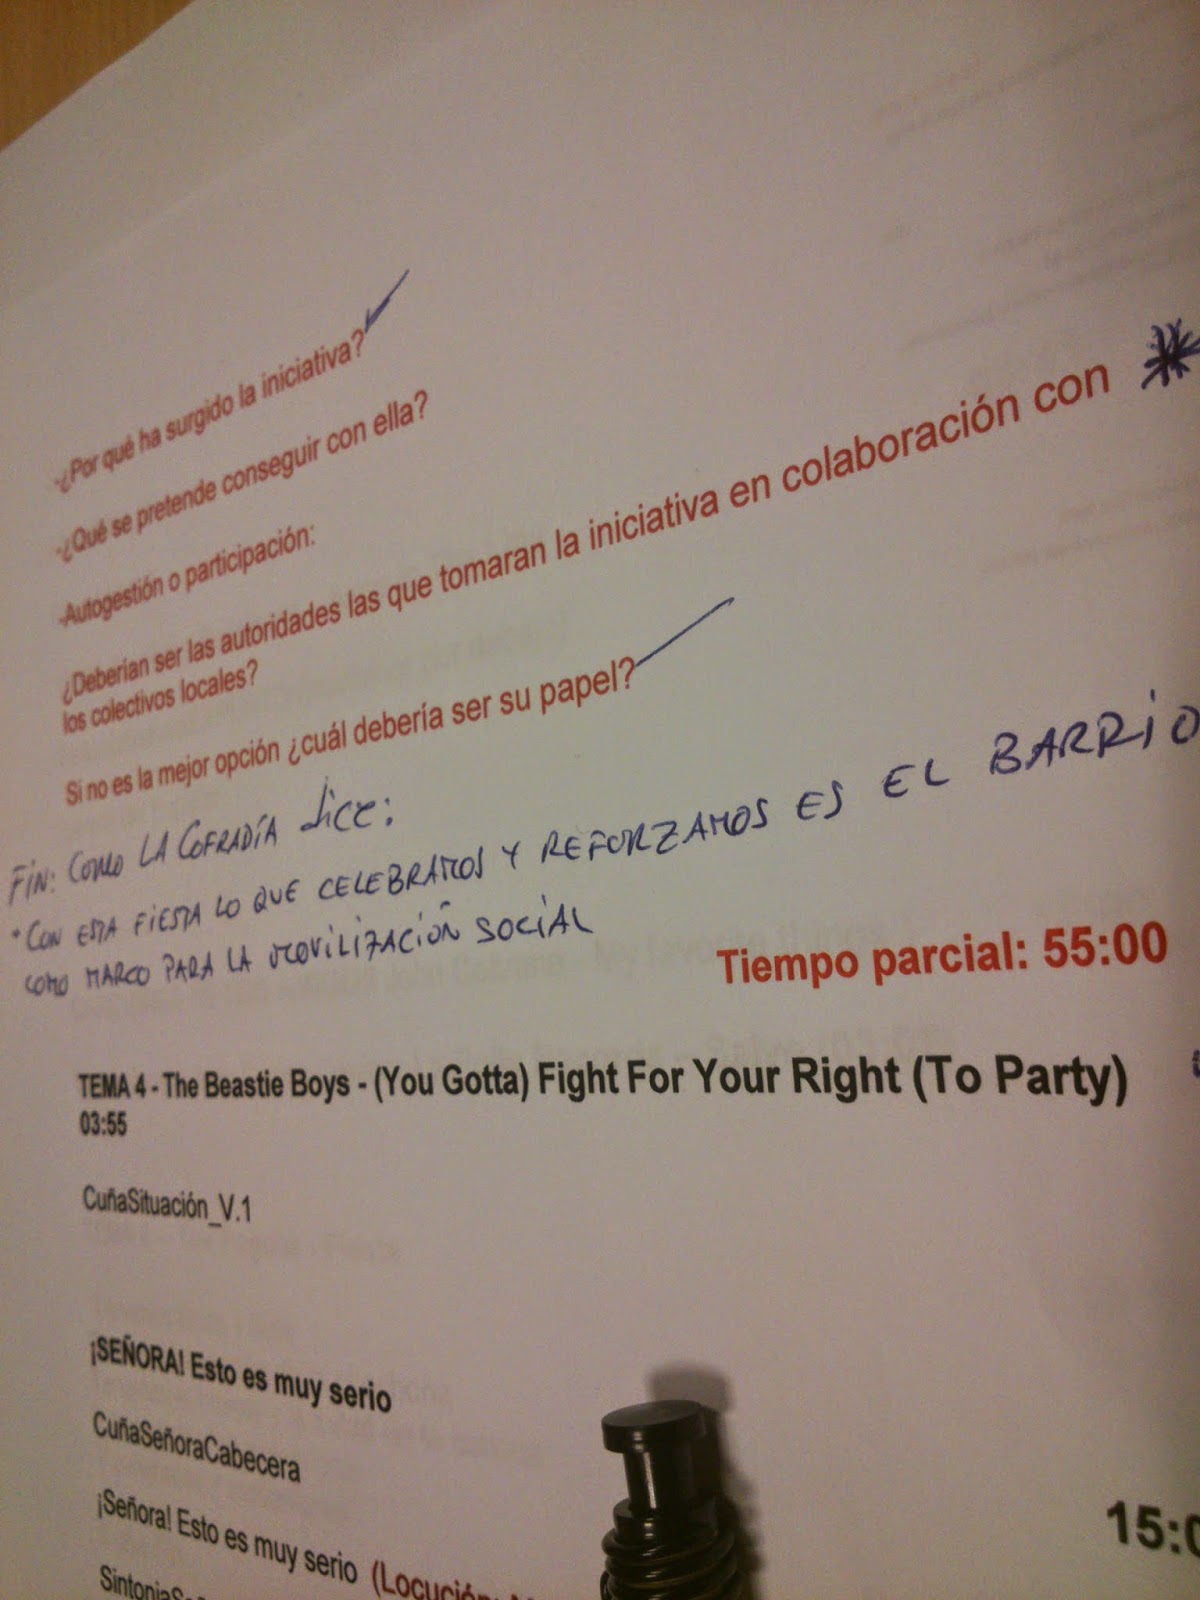 -¿Por qué ha surgido la iniciativa?
-¿Qué se pretende conseguir con ella?
-Autogestión o participación:
¿Deberían ser las autoridades las que tomaran la iniciativa en colaboración con
los colectivos locales?
Si no es la mejor opción ¿cuál debería ser su papel?
FIN: COMO LA COFRADÍA dice:
"CON ESTA FIESTA LO QUE CELEBRAMOS Y REFORZAMOS ES EL BARRIO
COMO MARCO PARA LA MOVILIZACIÓN SOCIAL
Tiempo parcial: 55:00
TEMA 4 - The Beastie Boys - (You Gotta) Fight For Your Right (To Party)
03:55
CuñaSituación_V.1
¡SEÑORA! Esto es muy serio
CuñaSeñoraCabecera
¡Señora! Esto es muy serio (Locución:
15:0